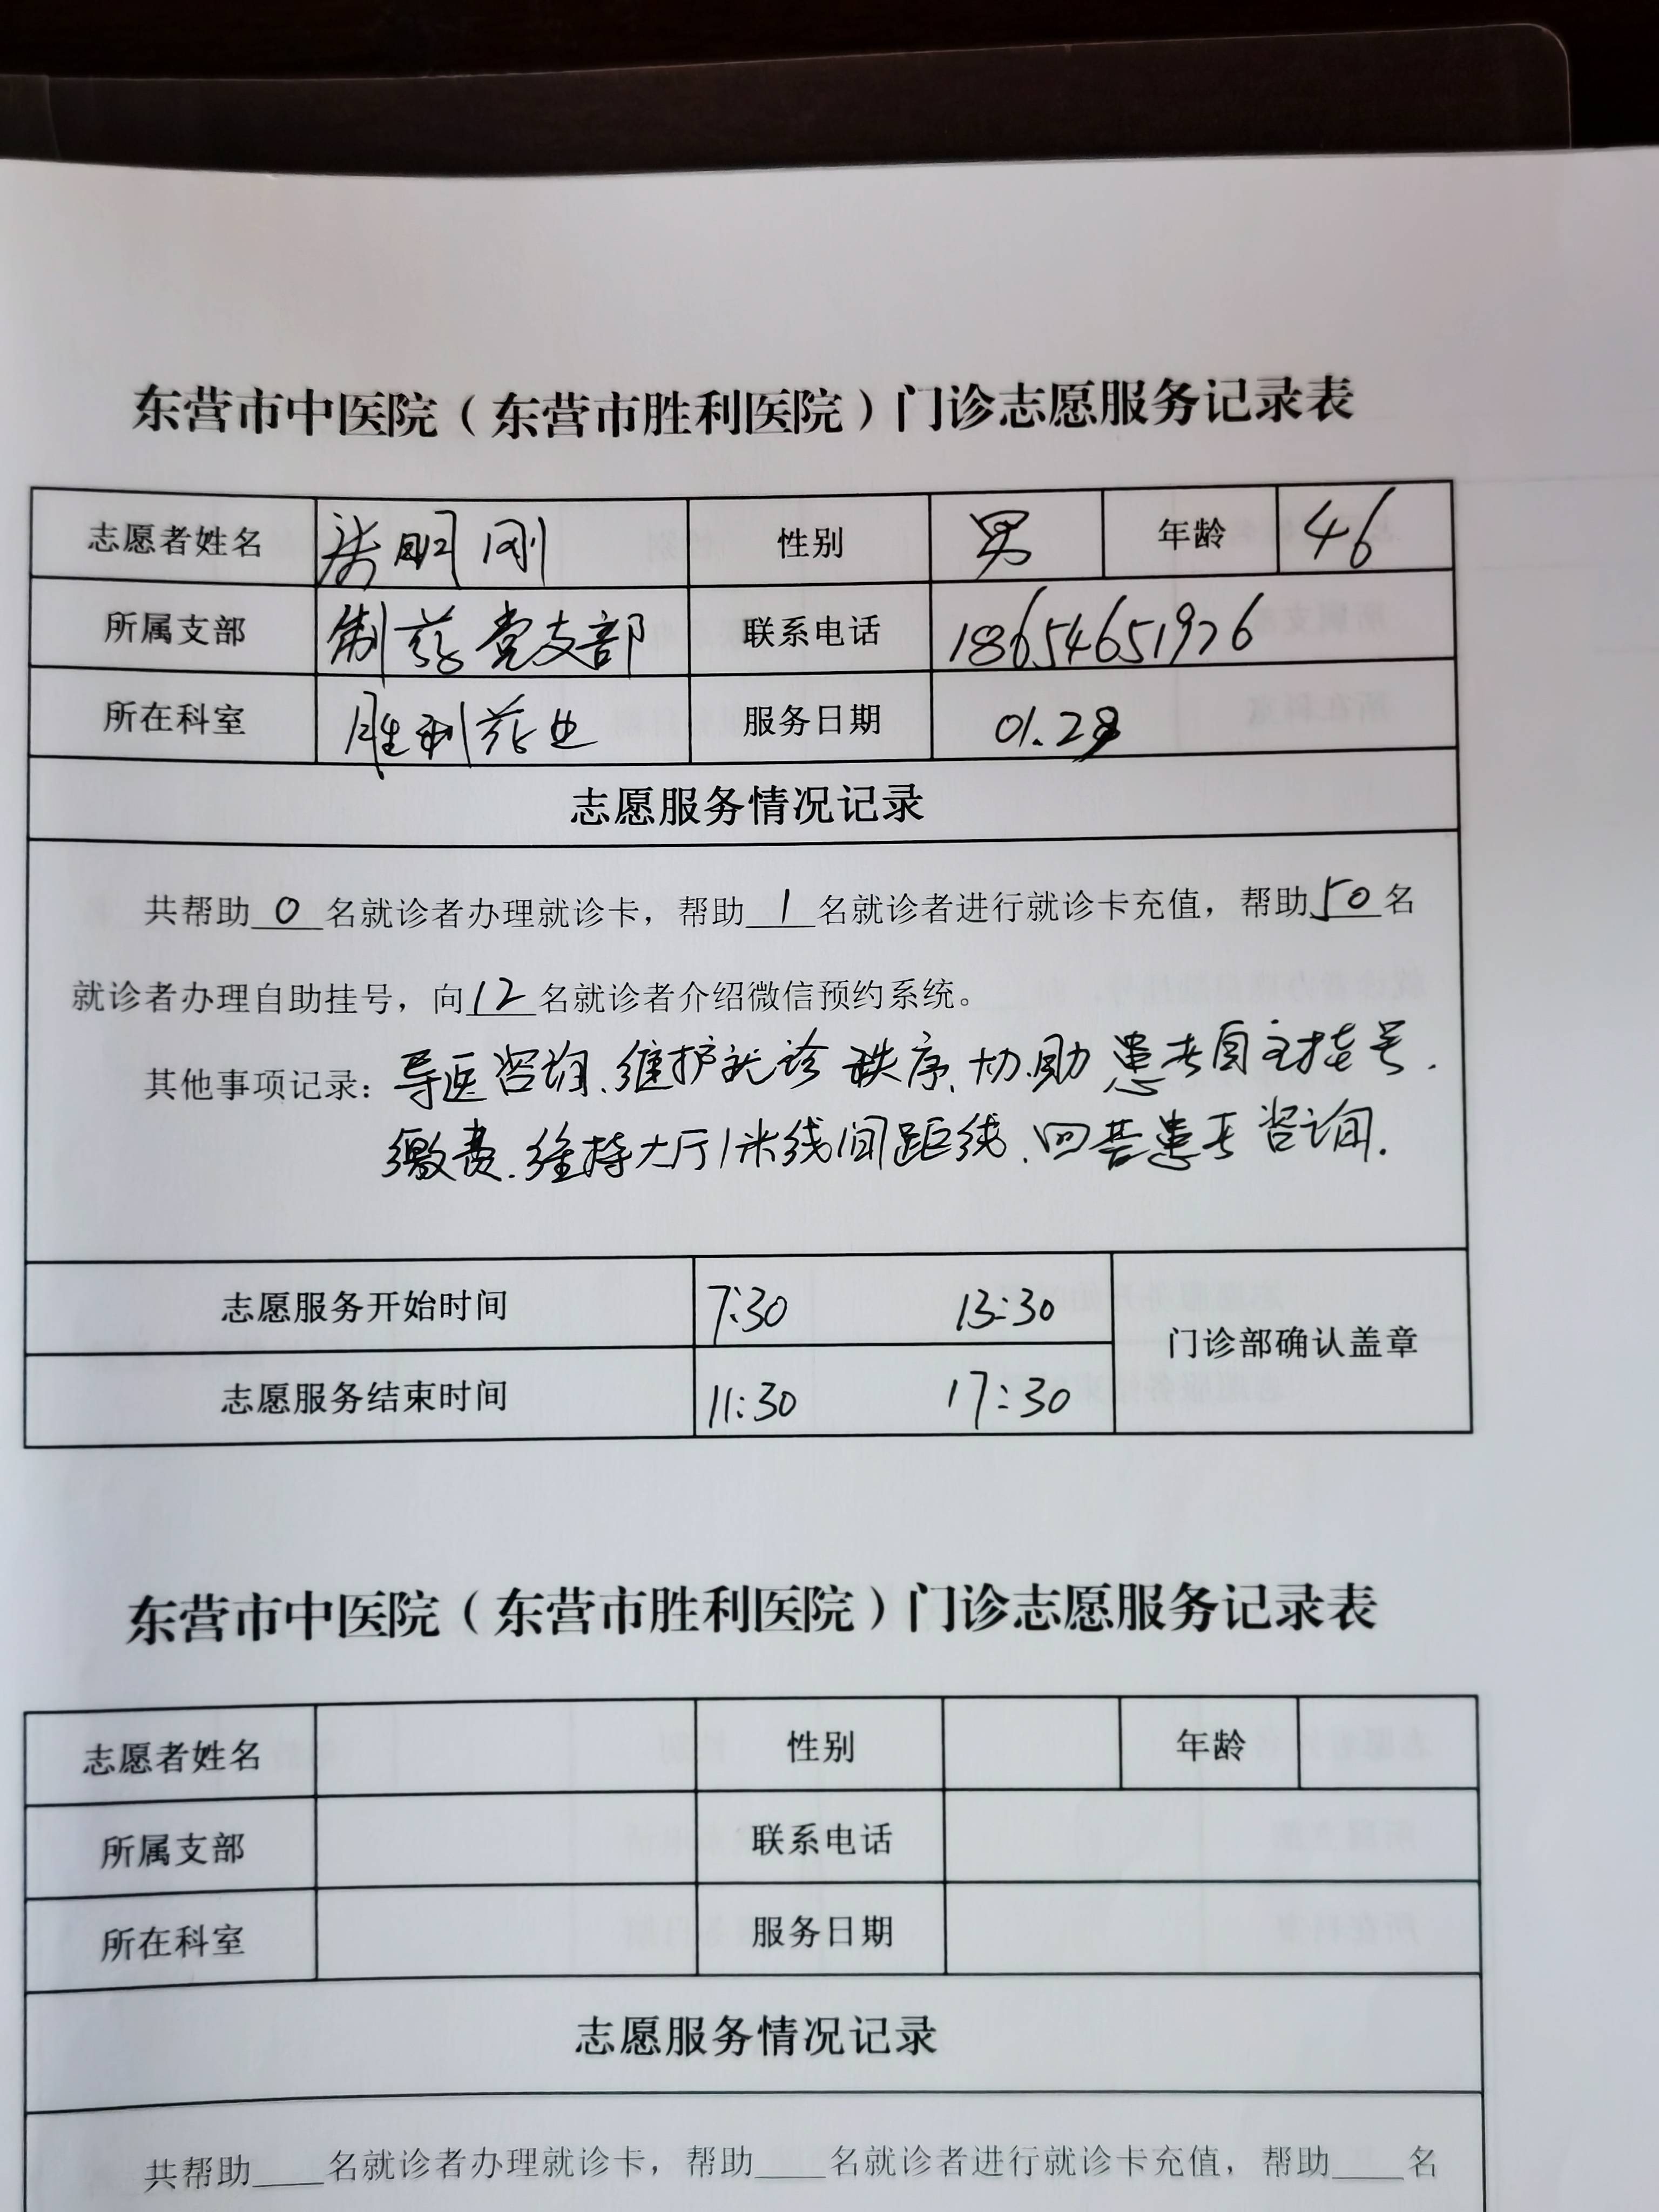 东营市中医院（东营市胜利医院）门诊志愿服务记录表
志愿者姓名 明刚 性别 男 年龄 46
所属支部 制药党支部 联系电话 18654651976
所在科室 胜利药业 服务日期 01.28
志愿服务情况记录
共帮助 0 名就诊者办理就诊卡，帮助 1 名就诊者进行就诊卡充值，帮助 50 名
就诊者办理自助挂号，向 12 名就诊者介绍微信预约系统。
其他事项记录：导医咨询、维护就诊秩序、协助患者自主挂号.
缴费.维持大厅1米线间距线、回答患者咨询.
志愿服务开始时间 7:30 13:30 门诊部确认盖章
志愿服务结束时间 11:30 17:30
东营市中医院（东营市胜利医院）门诊志愿服务记录表
志愿者姓名 性别 年龄
所属支部 联系电话
所在科室 服务日期
志愿服务情况记录
共帮助____名就诊者办理就诊卡，帮助____名就诊者进行就诊卡充值，帮助____名